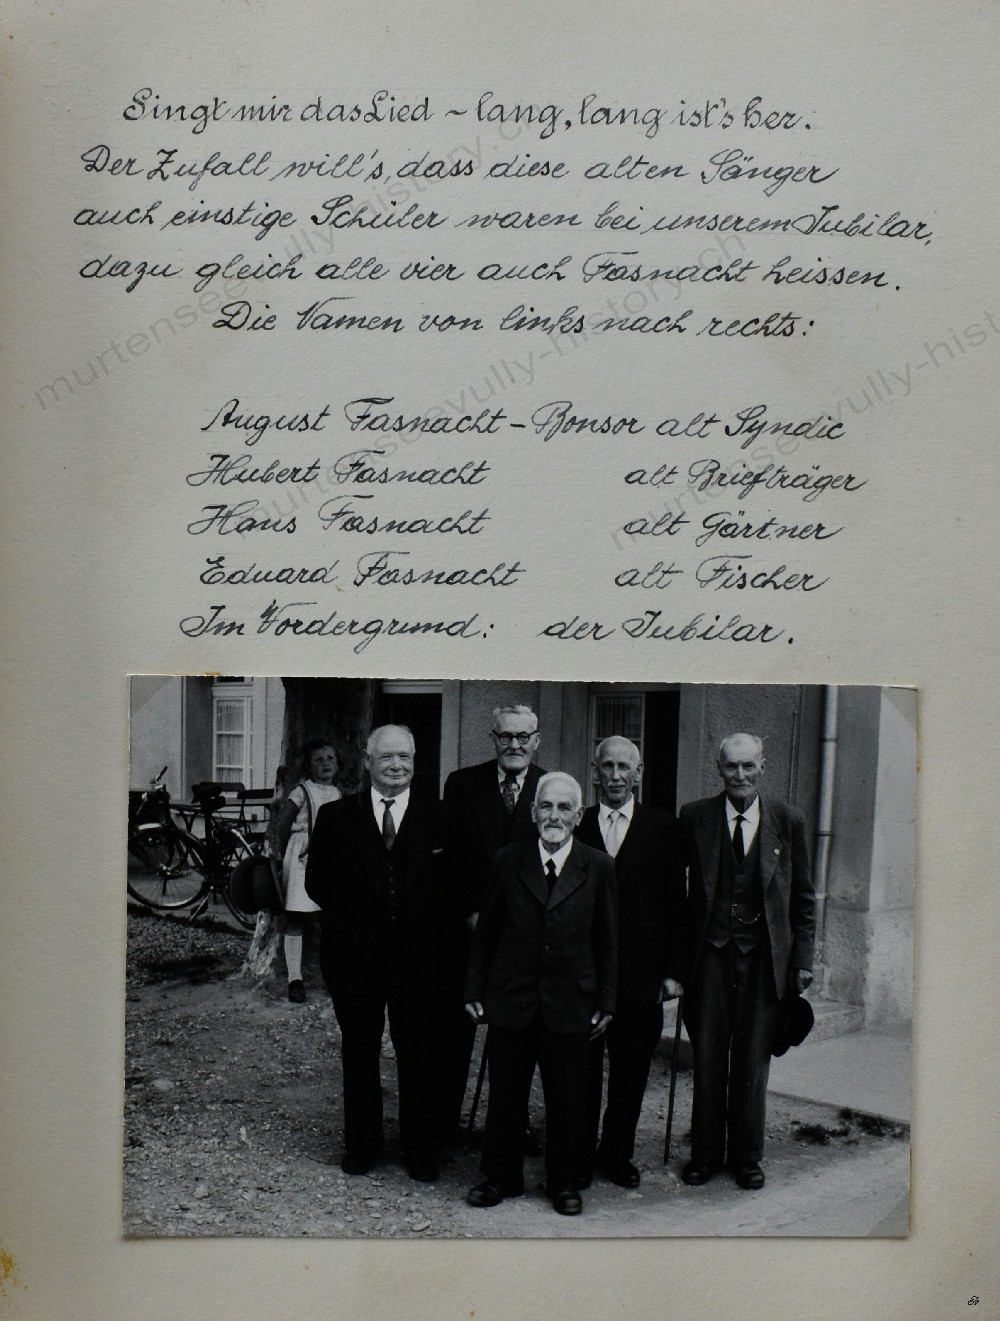 Singt mir das Lied ~ lang, lang ist's her.
Der Zufall will's, dass diese alten Sänger
auch einstige Schüler waren bei unserem Jubilar,
dazu gleich alle vier auch Fasnacht heissen.
Die Namen von links nach rechts:
August Fasnacht - Bonsor alt Syndic
Hubert Fasnacht alt Briefträger
Hans Fasnacht alt Gärtner
Eduard Fasnacht alt Fischer
Im Vordergrund: der Jubilar.
murtenseevully-history.ch
murtenseevully-history.ch
murtenseevully-hist